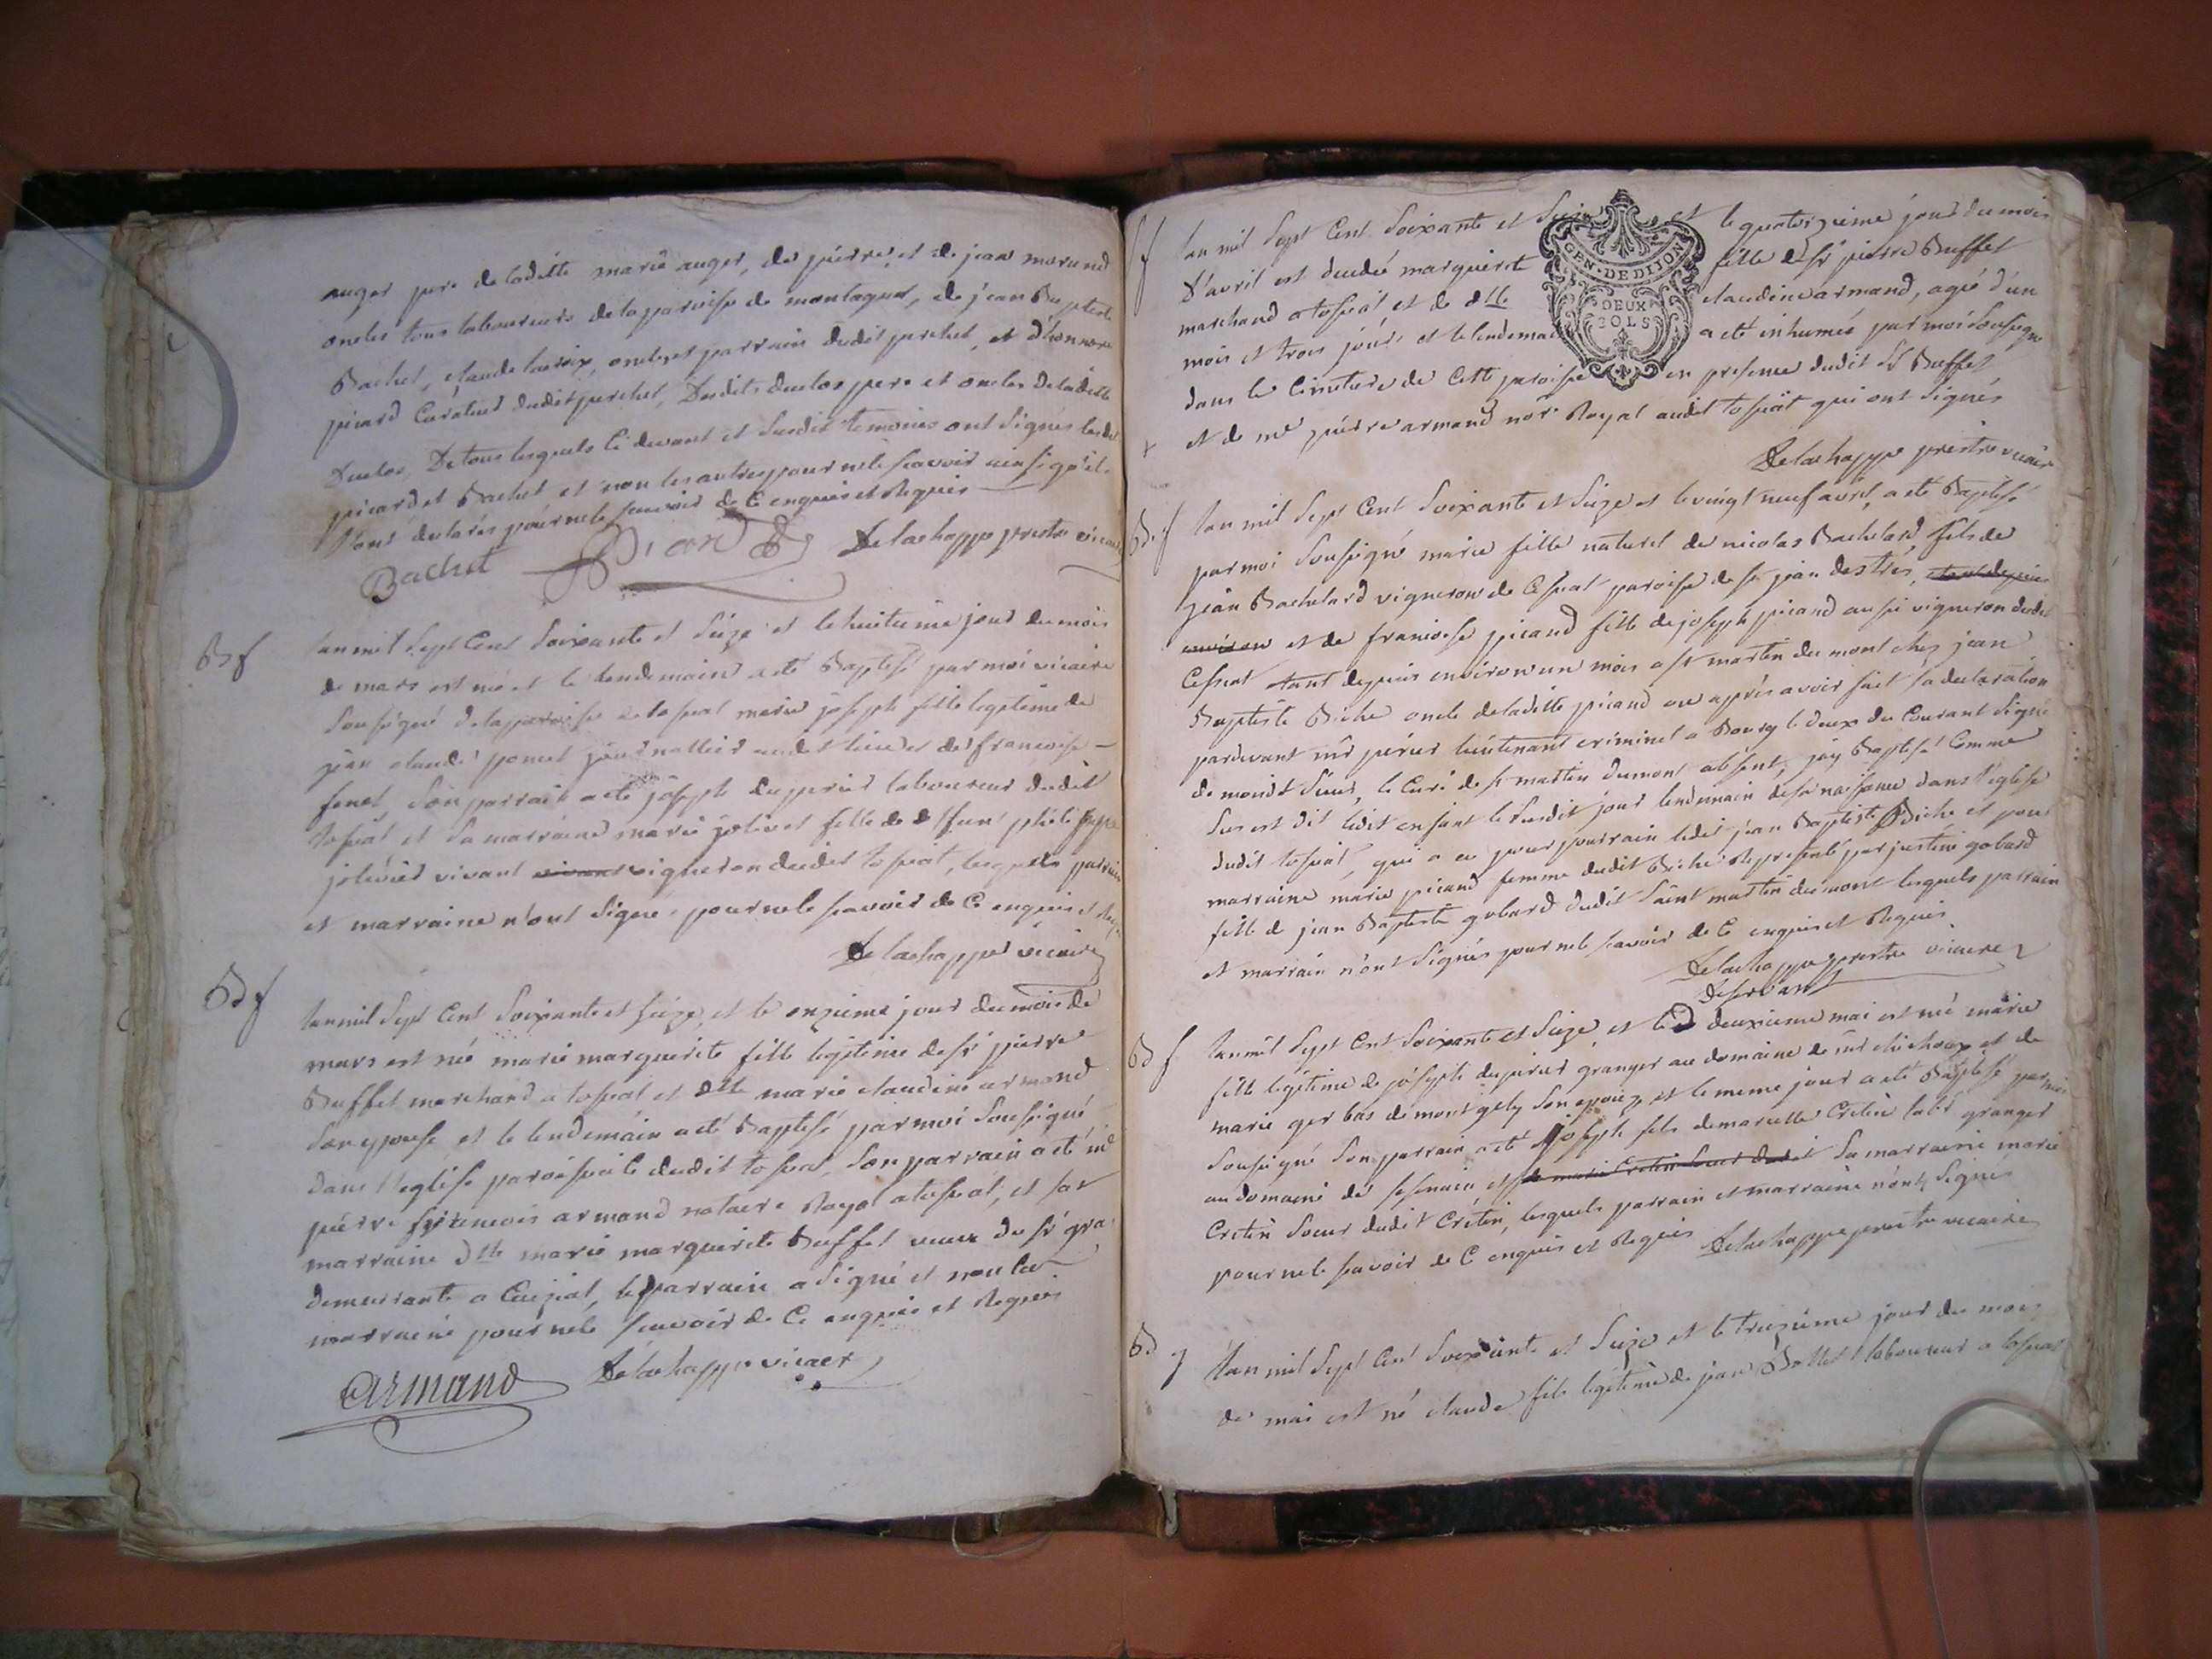 auger pere de laditte marie auger, de pierre, et de jean morand
oncles tous laboureurs de la paroisse de montagnat, de jean Baptiste
Bachet, claude lacroix, oncles et parrain dudit perchet, et d'honnore
picard Curateur dudit perchet, Desdits duclos pere et oncles de laditte
Duclos. De tous lesquels Ci devant et susdit temoins ont signés lesdit
picard et Bachet et non les autres pour ne le scavoir ainsi qu'ils
l'ont declarés pour ne le scavoir de Ce enquis et Requis
Bachet Picard Delachappe prestre vicaire
B f
lan mil sept Cent soixante et seize et le huitieme jour du mois
de mars est né et le lendemain a eté Baptisé par moi vicaire
sousigné de la paroisse de tossiat marie joseph fille legitime de
jean claude poncet journallier audit lieu et de francoise
fenet, son parrain a eté joseph duperier laboureur dudit
tossiat et sa marraine marie jolivet fille de deffunt philippe
jolivet vivant vivant vigneron dudit tossiat, lesquels parrain
et marraine n'ont signé pour ne le scavoir de Ce enquis et Requis
Delachappe vicaire
B f
lan mil sept Cent soixante et seize, et le onzieme jour du mois de
mars est née marie marguerite fille legitime de sr pierre
Buffet marchand a tossiat et dlle marie claudine armand
son epouse et le lendemain a eté Baptisé par moi sousigné
dans l'eglise paroissiale dudit tossiat, son parrain a eté me
pierre francois armand notaire Royal a tossiat, et sa
marraine dlle marie marguerite Buffet veuve du sr gra
demeurante a Cuiziat, le parrain a signé et non la
marraine pour ne le scavoir de Ce enquis et Requis
armand Delachappe vicaire
S f
lan mil sept Cent soixante et seize et le quatorzieme jour du mois
d'avril est decedée marguerite fille de sr pierre Buffet
marchand a tossiat et de dlle claudine armand, agé d'un
mois et trois jours et le lendemain a eté inhumée par moi sousigné
dans le Cimetiere de Cette paroisse en presence dudit sr Buffet
et de me pierre armand nore Royal audit tossiat qui ont signés
GEN. DE DIJON
DEUX
SOLS
Delachappe prestre vicaire
B f
lan mil sept Cent soixante et seize et le vingt neuf avril, a eté Baptisé
par moi sousigné marie fille naturel de nicolas Bachelard fils de
jean Bachelard vigneron de Cesseat paroisse de st jean destrés, etant depuis
environ et de francoise picand fille de joseph picand aussi vigneron dudit
Cesseat etant depuis environ un mois a st martin du mont chez jean
Baptiste Biche oncle de laditte picand ou aprés avoir fait sa declaration
pardevant mr perier lieutenant criminel a Bourg le deux du Courant signé
de mondit sieur, le Curé de st martin dumont absent, jay Baptisé Comme
sus est dit ledit enfant le susdit jour lendemain de sa naissance dans l'eglise
dudit tossiat, qui a eu pour parrain ledit jean Baptiste Biche et pour
marraine marie picand femme dudit Biche Representé par justine gobard
fille de jean Baptiste gobard dudit saint martin du mont lesquels parrain
et marrain n'ont signés pour ne le scavoir de Ce enquis et Requis
Delachappe prestre vicaire
deservant
B f
lan mil sept Cent soixante et seize, et le deuxieme mai est née marie
fille legitime de joseph duperier granger au domaine de chichoux et de
marie gerbas de montgely son epouze, et le meme jour a eté Baptisé par moi
sousigné son parrain a eté joseph fils de marielle Cretin labr granger
au domaine de et de marie Cretin soeur dudit sa marraine marie
Cretin soeur dudit Cretin, lesquels parrain et marraine n'ont signés
pour ne le scavoir de Ce enquis et Requis Delachappe prestre vicaire
B g
lan mil sept Cent soixante et seize et le treizieme jour du mois
de mai est né claude fils legitime de jean Bollet laboureur a tossiat